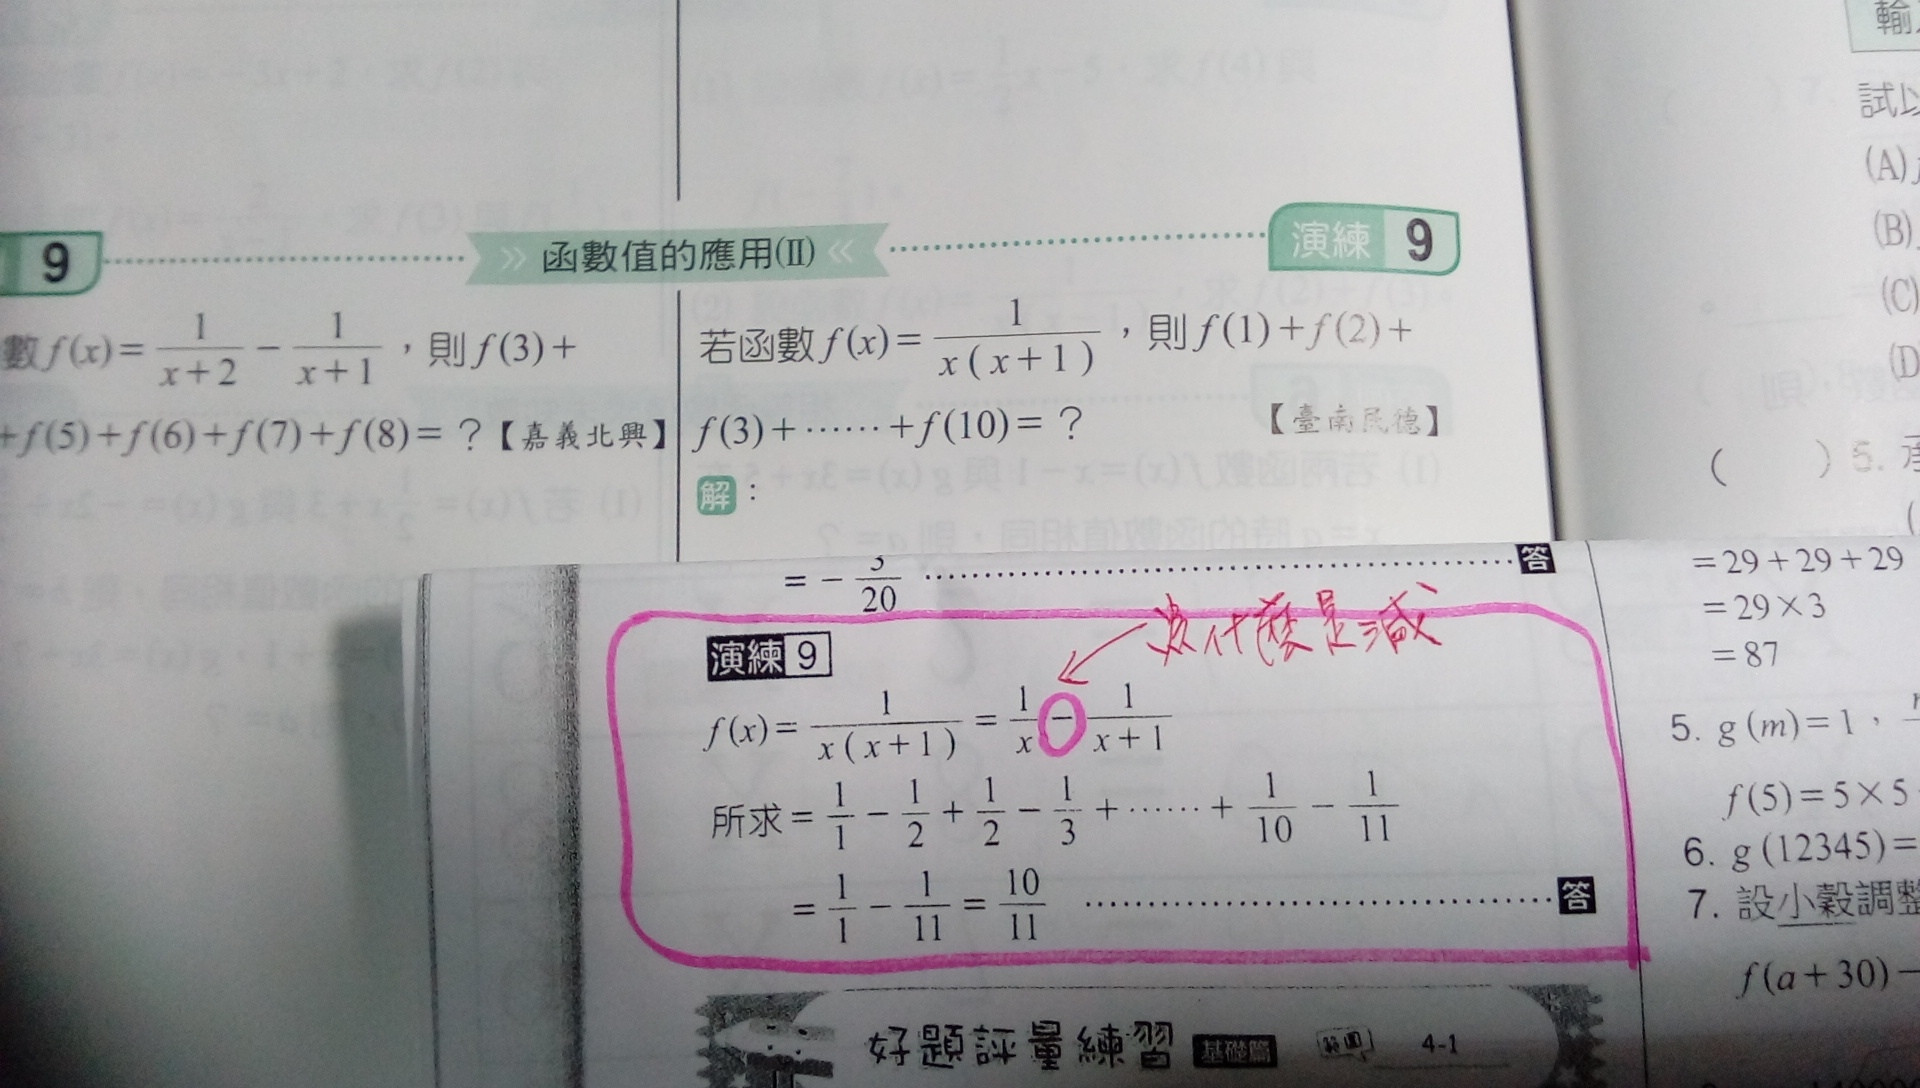 輸
試以
(A)
(B)
(C)
(D
( ) 5.
9
函數值的應用(II)
演練 9
數 f(x) = 1/(x+2) − 1/(x+1)，則 f(3)+
+f(5)+f(6)+f(7)+f(8)=？【嘉義北興】
若函數 f(x) = 1/(x(x+1))，則 f(1)+f(2)+
f(3)+……+f(10)=？ 【臺南民德】
解：
= − 3/20 答
為什麼是減
演練 9
f(x) = 1/(x(x+1)) = 1/x − 1/(x+1)
所求 = 1/1 − 1/2 + 1/2 − 1/3 + …… + 1/10 − 1/11
= 1/1 − 1/11 = 10/11 答
好題評量練習 基礎篇 範圍 4-1
=29+29+29
=29×3
=87
5. g(m)=1，
f(5)=5×5
6. g(12345)=
7. 設小穀調整
f(a+30)−